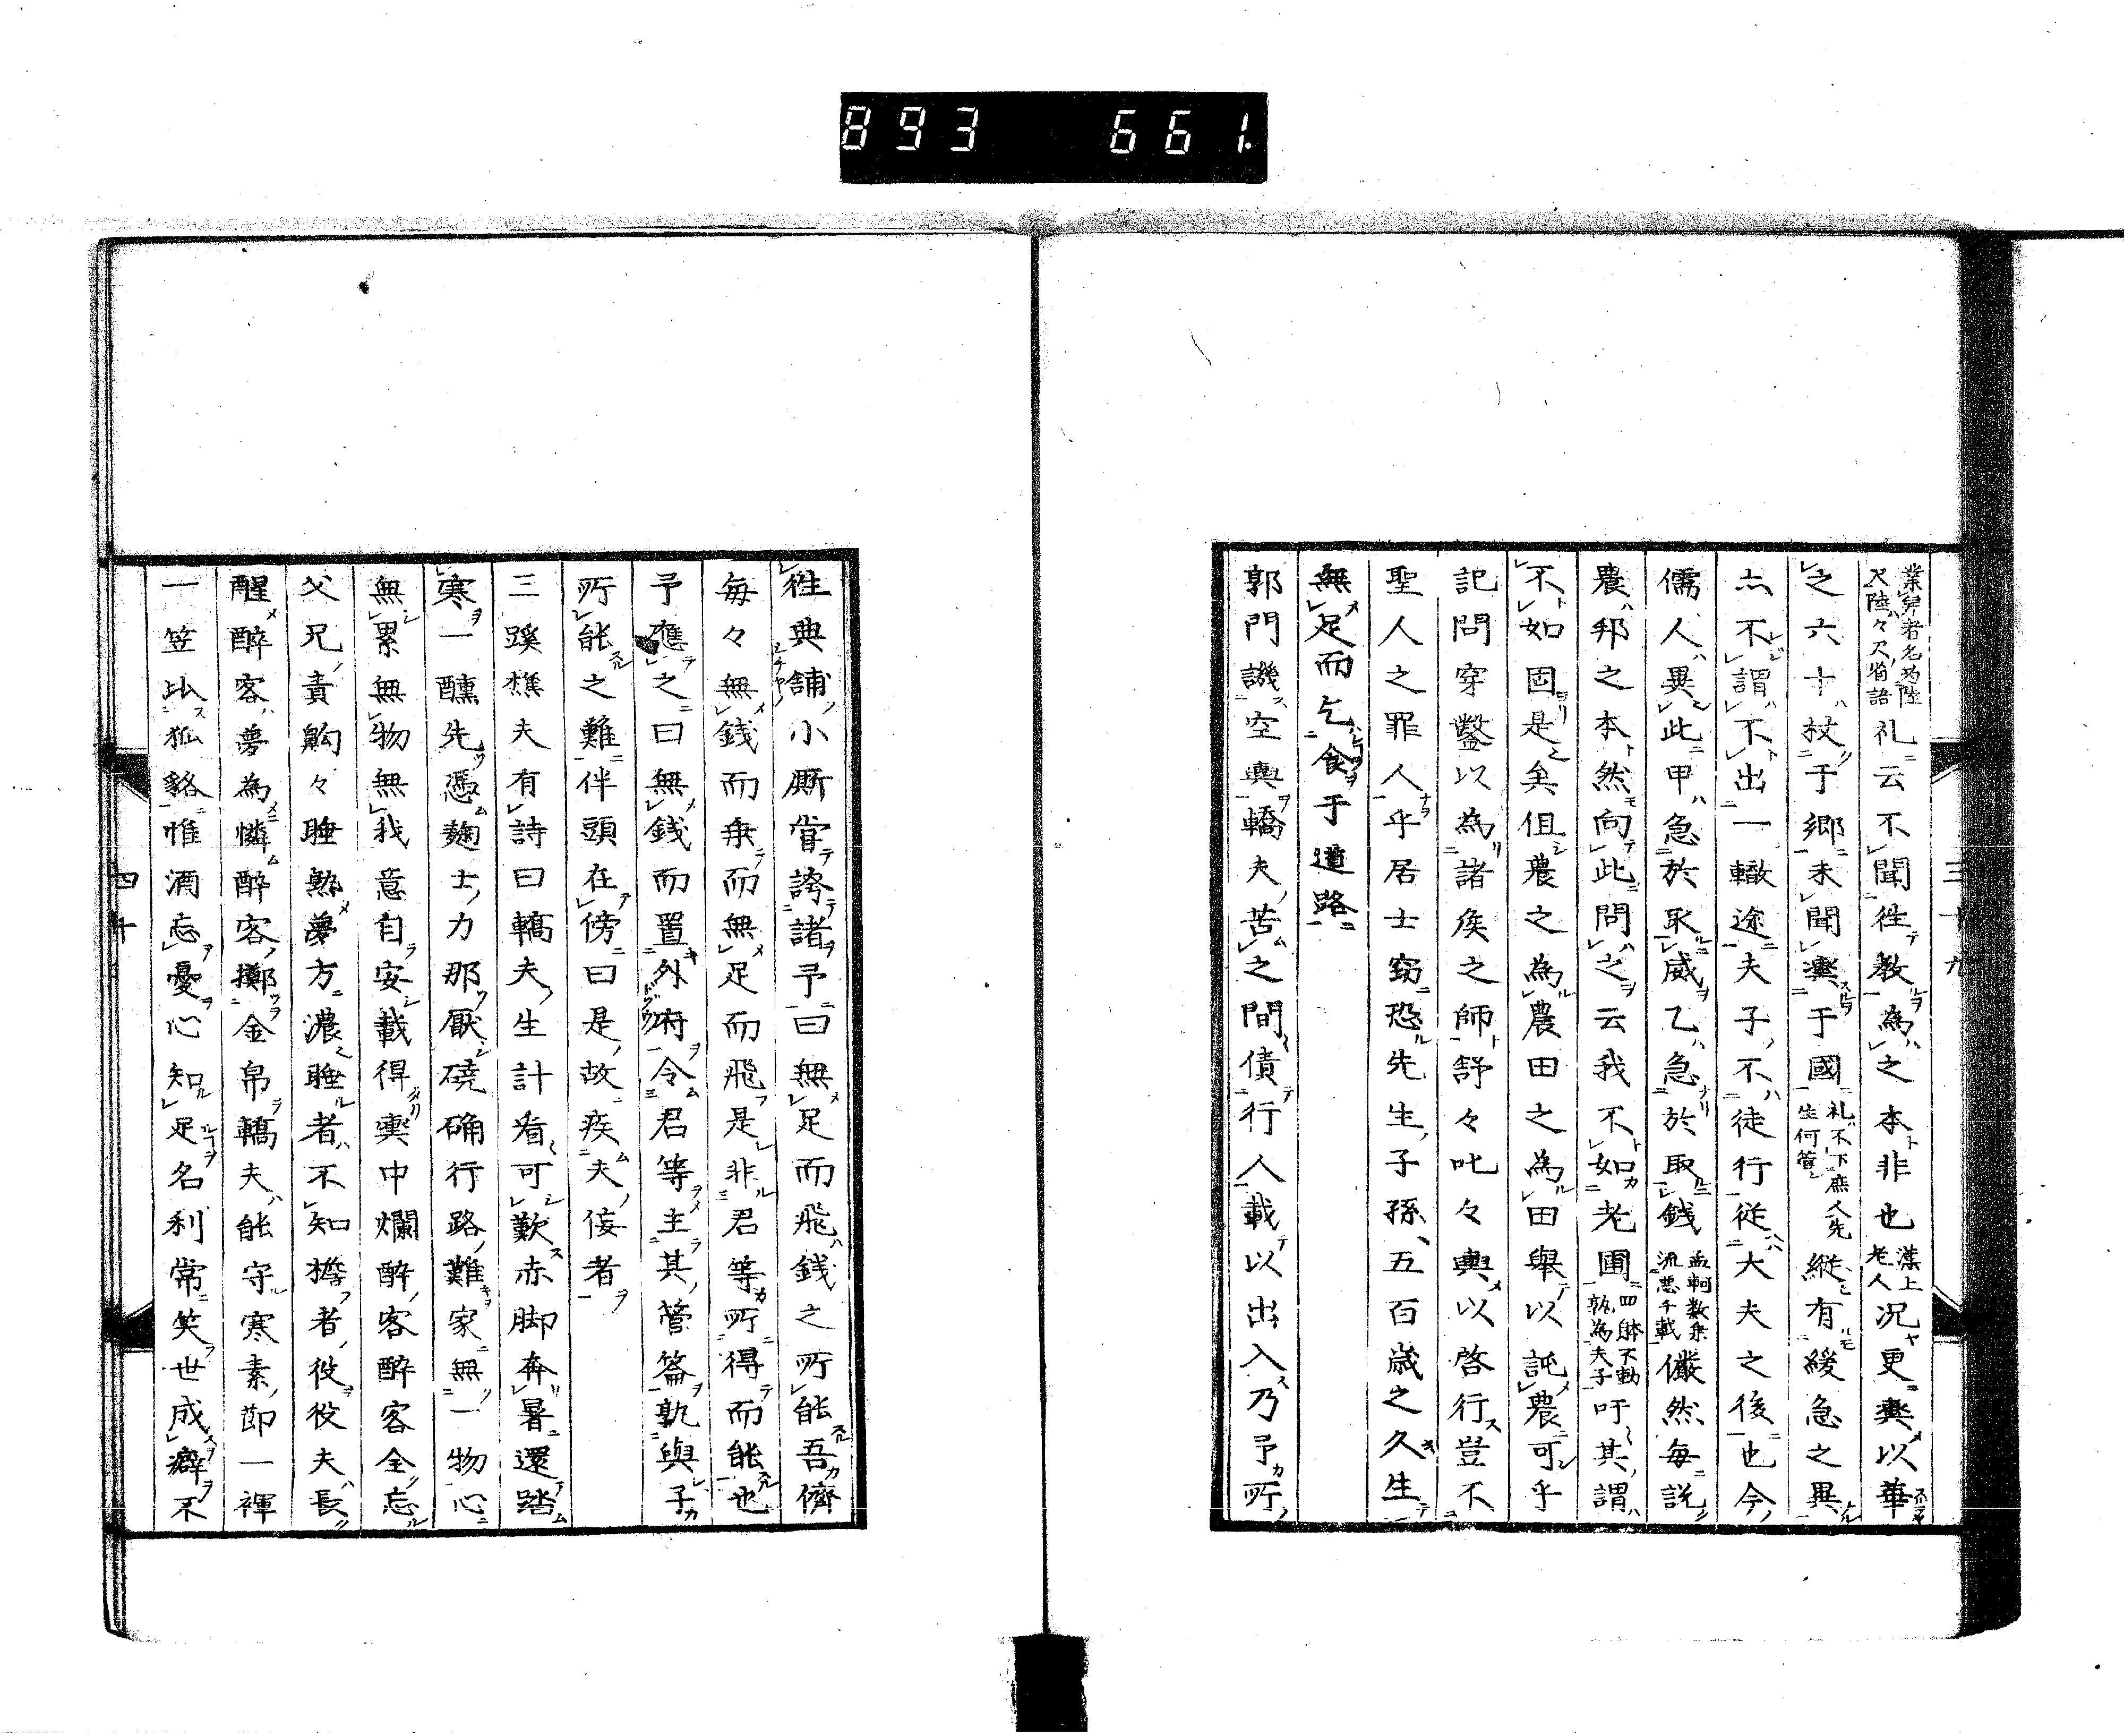 893 661.
業舁者名為陸尺陸々尺省語礼云不聞徃教為之本非也漢上老人況更輿以華
之六十杖于郷未聞輿于國礼不下庶人先生何管縦有緩急之異
亦不謂不出一轍途夫子不徒行従大夫之後也今
儒人異此甲急於取威乙急於取銭孟軻数乗流悪千載儼然毎説
農邦之本然向此問之云我不如老圃四躰不動孰為夫子吁其謂
不如固是矣但農之為農田之為田舉以託農可乎
記問穿鑿以為諸矦之師舒々叱々輿以啓行豈不
聖人之罪人乎居士窃恐先生子孫五百歳之久生
無足而乞食于道路
郭門譏空輿轎夫苦之間債行人載以出入乃予所
三十九
徃典舗小厮嘗誇諸予曰無足而飛銭之所能吾儕
毎々無銭而乗而無足而飛是非君等所得而能也
予應之曰無銭而置外府令君等主其管籥孰與子
所能之難伴頭在傍曰是故疾夫侫者
三蹊樵夫有詩曰轎夫生計看可歎赤脚奔暑還踏
寒一醺先憑麹士力那厭磽确行路難家無一物心
無累無物無我意自安載得輿中爛酔客酔客全忘
父兄責齁々睡熟夢方濃睡者不知擔者役役夫長
醒酔客夢為憐酔客擲金帛轎夫能守寒素節一褌
一笠比狐貉惟酒忘憂心知足名利常笑世成癖不
四十